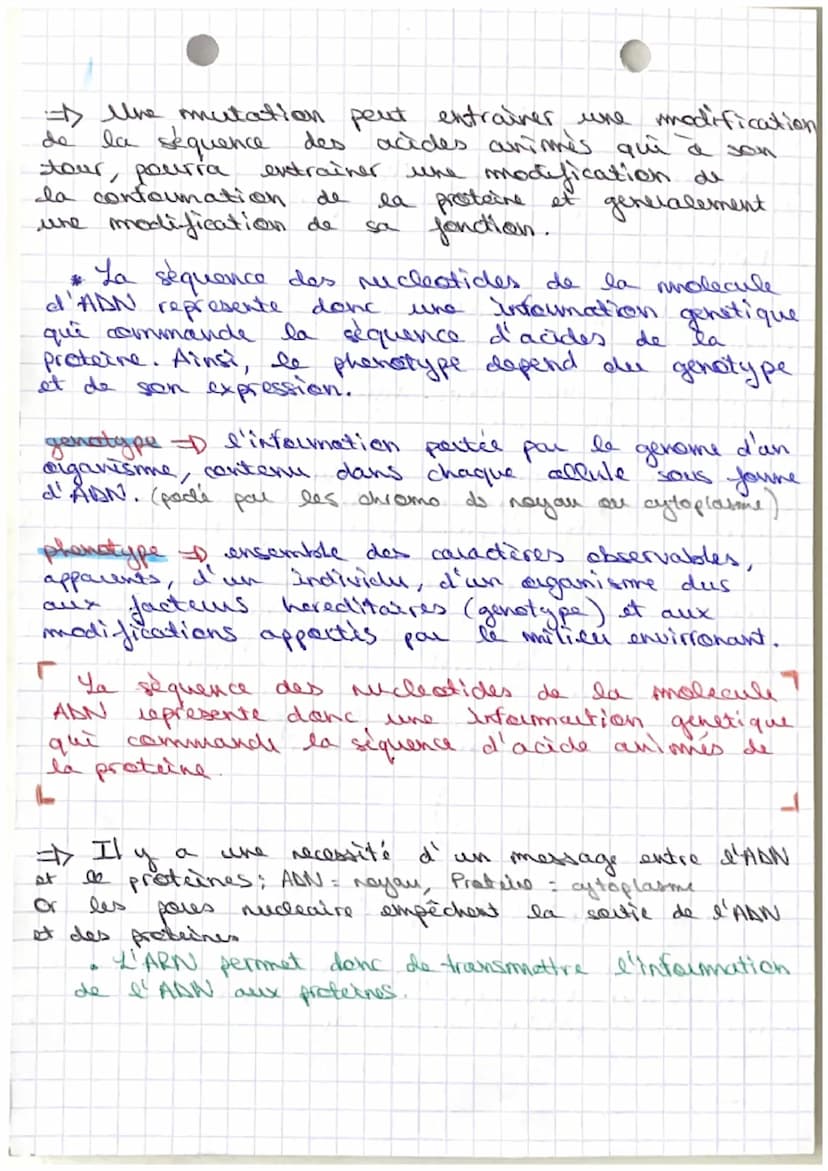 => Une mutation peut entrainer une modification
de la séquence des acides animés qui à son
tour, pourra entrainer une modification de
la conformation de la proteine et generalement
une modification de sa fonction.
* La séquence des nucleotides de la molecule
d'ADN represente donc une information genetique
qui commande la séquence d'acides de la
proteine. Ainsi, le phenotype depend du genotype
et de son expression.
genotype => l'information portée par le genome d'un
organisme, contenu dans chaque cellule sous forme
d'ADN. (porté par les chromo ds noyau ou cytoplasme)
phenotype => ensemble des caractères observables,
apparents, d'un individu, d'un organisme dus
aux facteurs hereditaires (genotype) et aux
modifications apportés par le milieu envirronant.
La séquence des nucleotides de la molecule
ADN represente donc une information genetique
qui commande la séquence d'acide animés de
la proteine.
=> Il y a une necessité d'un message entre l'ADN
et le proteines ; ADN = noyau, Proteine = cytoplasme
Or les pores nucleaire empêchent la sortie de l'ADN
et des proteines
• L'ARN permet donc de transmettre l'information
de l'ADN aux proteines.